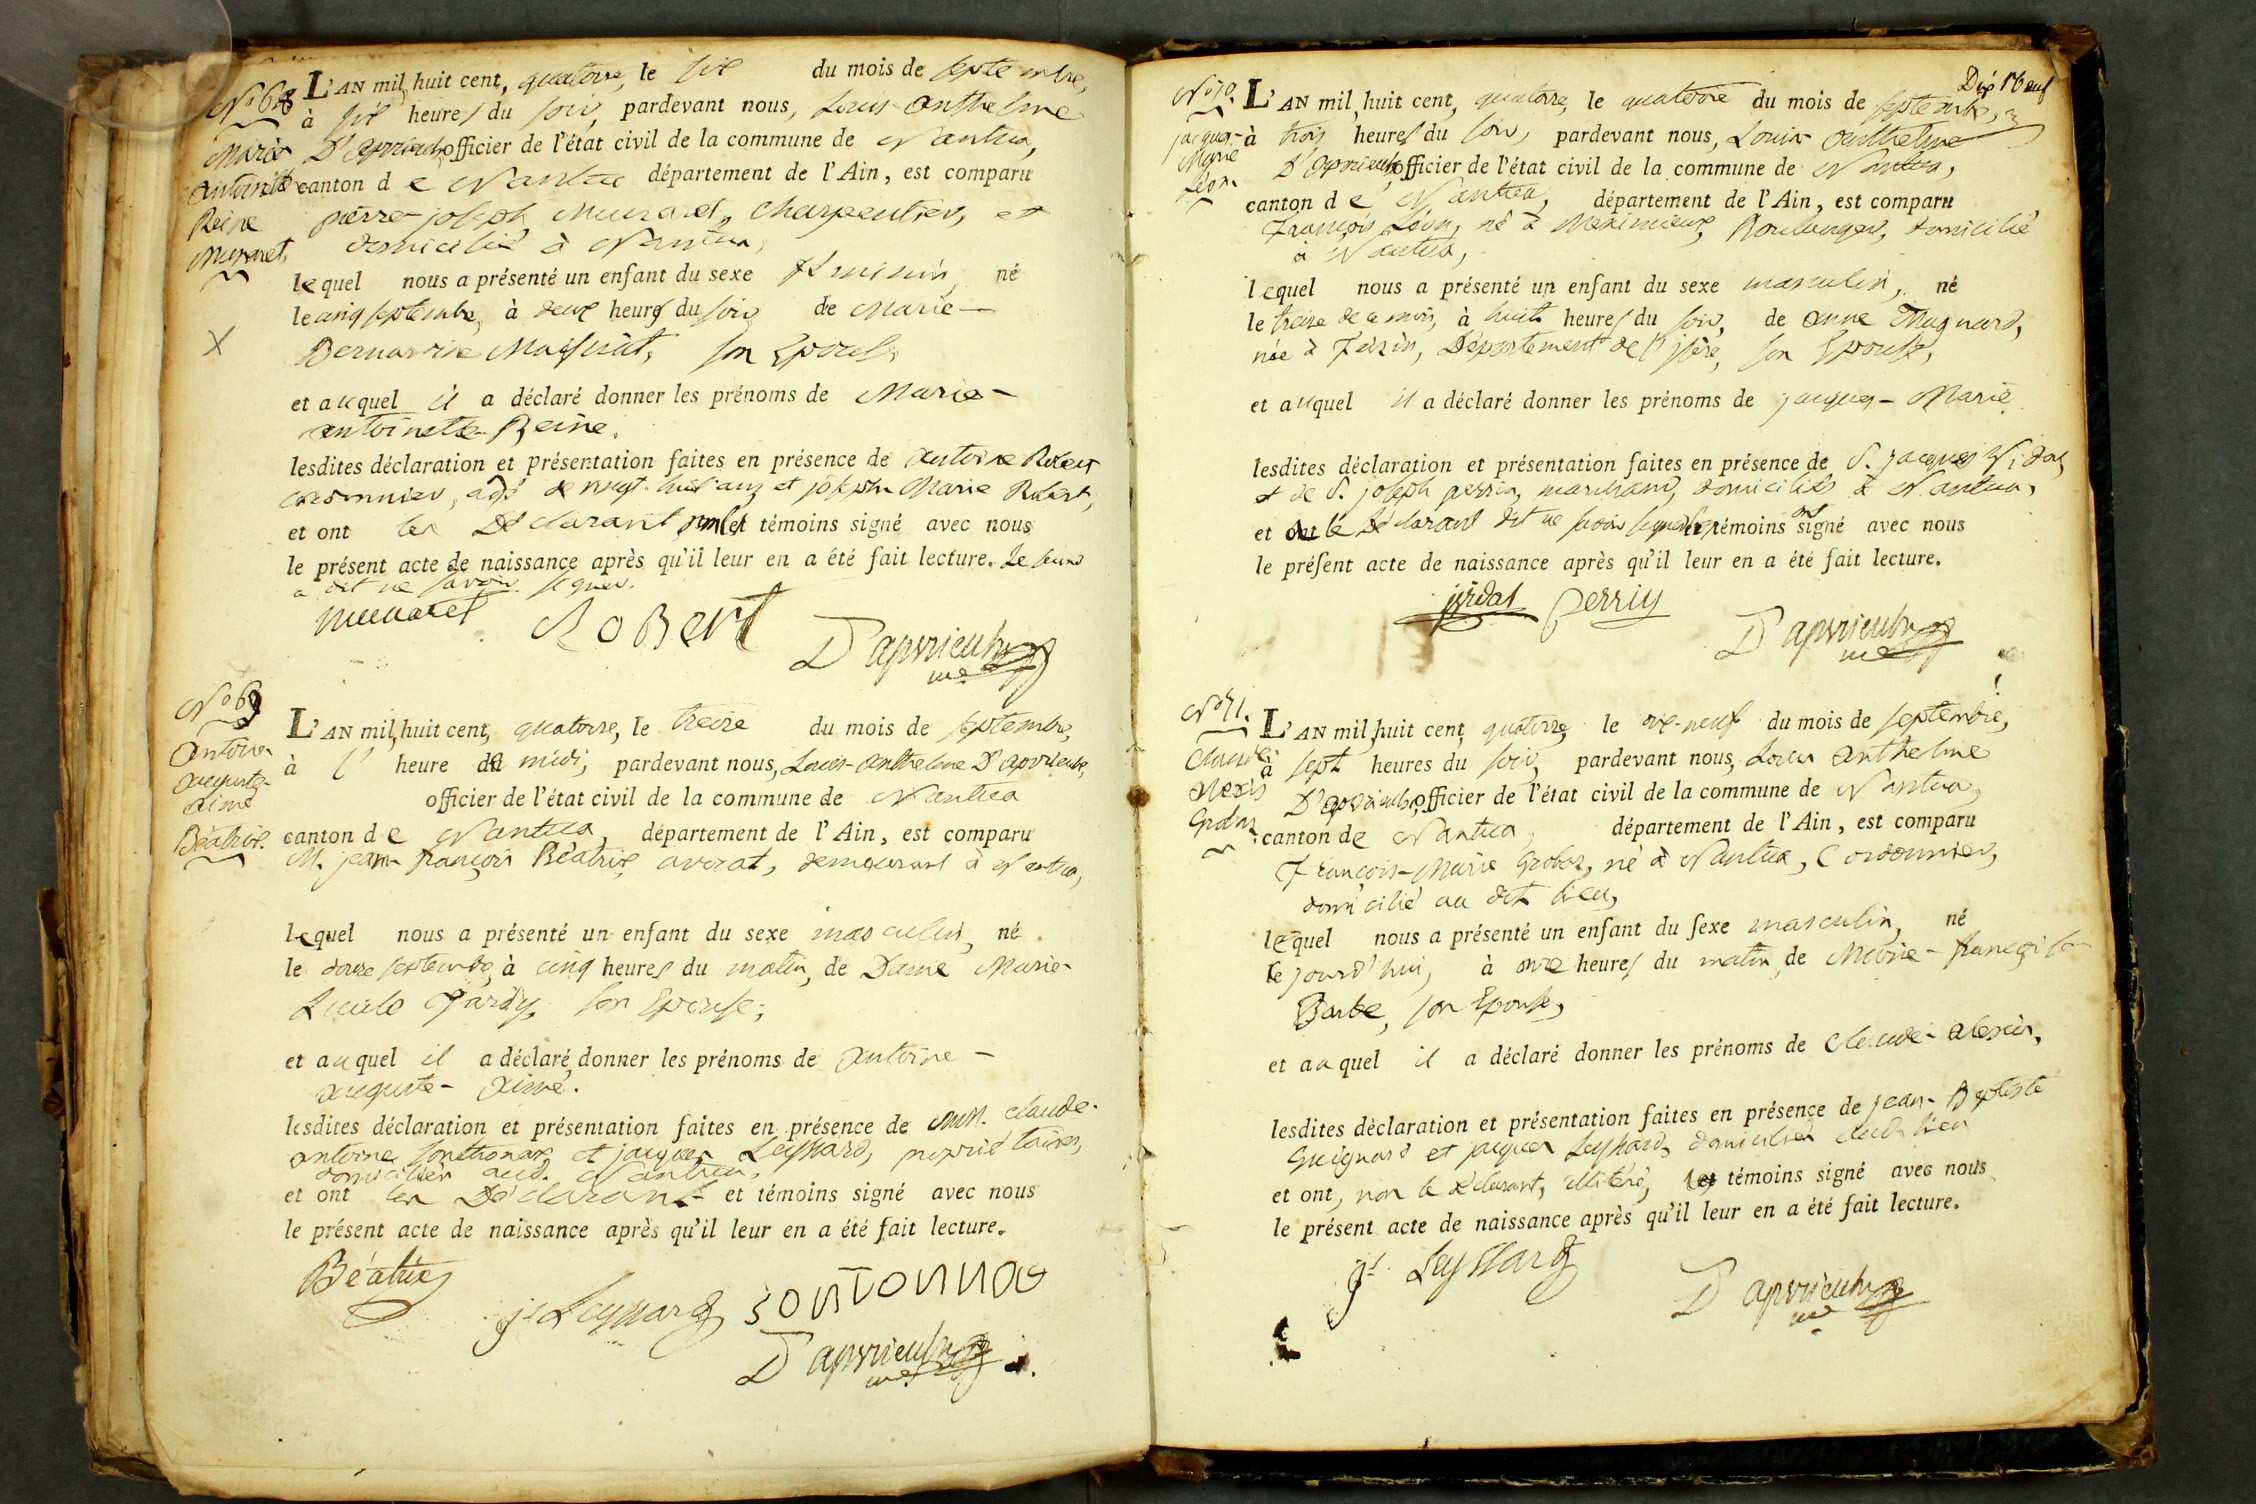 N° 68
Marie
antoinette
Reine
Munaret
L'AN mil huit cent, quatorze, le six du mois de septembre,
à six heures du soir, pardevant nous, Louis Anthelme
D'apvrieulx, officier de l'état civil de la commune de Nantua,
canton de Nantua département de l'Ain, est comparu
pierre-joseph Munaret, charpentier, et
domicilié à Nantua,
lequel nous a présenté un enfant du sexe féminin, né
le cinq septembre, à deux heures du soir, de Marie-
Bernardine son Epouse,
et auquel il a déclaré donner les prénoms de Marie-
antoinette-Reine.
lesdites déclaration et présentation faites en présence de antoine Robert
cordonnier, agé de vingt-huit ans et joseph Marie Robert,
et ont les Déclarant témoins signé avec nous
le présent acte de naissance après qu'il leur en a été fait lecture. Le
a dit ne savoir signer.
Munaret RoBert D'apvrieulx
me
N° 69
Antoine
auguste
aimé
Béatrix
L'AN mil huit cent, quatorze, le treize du mois de septembre,
à l' heure de midi, pardevant nous, Louis-Anthelme D'apvrieulx,
officier de l'état civil de la commune de Nantua
canton de Nantua, département de l'Ain, est comparu
M. jean-françois Béatrix, avocat, demeurant à Nantua,
lequel nous a présenté un enfant du sexe masculin, né
le douze septembre, à cinq heures du matin, de Dame Marie-
Jardy, son Epouse,
et auquel il a déclaré donner les prénoms de antoine-
auguste-aimé.
lesdites déclaration et présentation faites en présence de MM. claude-
antoine Sonthonax et jacques Leyssard, propriétaires,
domiciliés aud. Nantua,
et ont les Déclarant et témoins signé avec nous
le présent acte de naissance après qu'il leur en a été fait lecture.
Béatrix
js Leyssard sontonnax
D'apvrieulx
me
Dix Neuf
N° 70.
jacques-
Marie
Léon.
L'AN mil huit cent, quatorze, le quatorze du mois de septembre,
à trois heures du soir, pardevant nous, Louis Anthelme
D'apvrieulx, officier de l'état civil de la commune de Nantua,
canton de Nantua, département de l'Ain, est comparu
François Léon, né à Meximieux, Boulanger, domicilié
à Nantua,
lequel nous a présenté un enfant du sexe masculin, né
le treize de ce mois, à huit heures du soir, de anne
née à Département de l'isère, son Epouse,
et auquel il a déclaré donner les prénoms de jacques-Marie
lesdites déclaration et présentation faites en présence de S. jacques Vidal,
et de S. joseph perrin, marchand, domiciliés à Nantua,
et le Déclarant dit ne savoir signer les témoins ont signé avec nous
le présent acte de naissance après qu'il leur en a été fait lecture.
jvidal perrin
D'apvrieulx
me
N° 71.
Claude
Alexis
Grobaz
L'AN mil huit cent, quatorze, le dix-neuf du mois de septembre,
à sept heures du soir, pardevant nous, Louis Anthelme
D'apvrieulx, officier de l'état civil de la commune de Nantua,
canton de Nantua, département de l'Ain, est comparu
François-Marie Grobaz, né à Nantua, Cordonnier,
domicilié au dit lieu,
lequel nous a présenté un enfant du sexe masculin, né
le jourd'hui, à onze heures du matin, de Marie-françoise
Barbe, son Epouse,
et auquel il a déclaré donner les prénoms de claude-alexis.
lesdites déclaration et présentation faites en présence de jean-Baptiste
Guignard et jacques Leyssard, domiciliés audit lieu
et ont, non le Déclarant, illitéré, les témoins signé avec nous
le présent acte de naissance après qu'il leur en a été fait lecture.
js Leyssard
D'apvrieulx
me